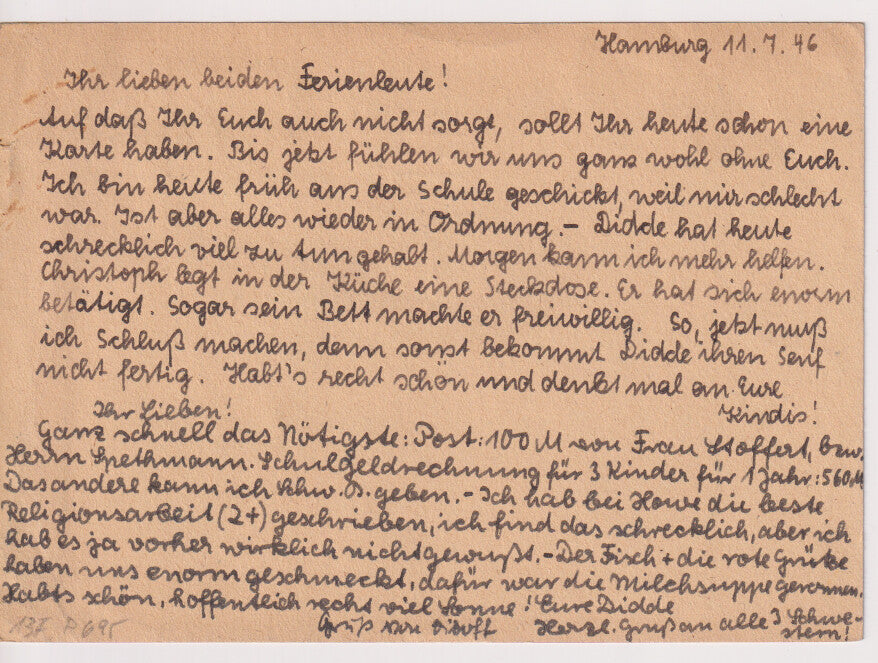 Hamburg 11.7.46
Ihr lieben beiden Ferienleute!
Auf daß Ihr Euch auch nicht sorgt, sollt Ihr heute schon eine
Karte haben. Bis jetzt fühlen wir uns ganz wohl ohne Euch.
Ich bin heute früh aus der Schule geschickt, weil mir schlecht
war. Ist aber alles wieder in Ordnung. – Didde hat heute
schrecklich viel zu tun gehabt. Morgen kann ich mehr helfen.
Christoph legt in der Küche eine Steckdose. Er hat sich enorm
betätigt. Sogar sein Bett machte er freiwillig. So, jetzt muß
ich Schluß machen, denn sonst bekommt Didde ihren Senf
nicht fertig. Habt's recht schön und denkt mal an Eure
Kindis!
Ihr Lieben!
Ganz schnell das Nötigste: Post: 100 M von Frau Stoffert, bzw.
Herrn Spethmann. Schulgeldrechnung für 3 Kinder für 1 Jahr: 560 M.
Das andere kann ich Schw. B. geben. – Ich hab bei Howe die beste
Religionsarbeit (2+) geschrieben, ich find das schrecklich, aber ich
hab es ja vorher wirklich nicht gewußt. – Der Fisch + die rote Grütze
haben uns enorm geschmeckt, dafür war die Milchsuppe geronnen.
Habts schön, hoffentlich recht viel Sonne! Eure Didde
Gruß von Herzl. Gruß an alle 3 Schwe-
stern!
137 P 695